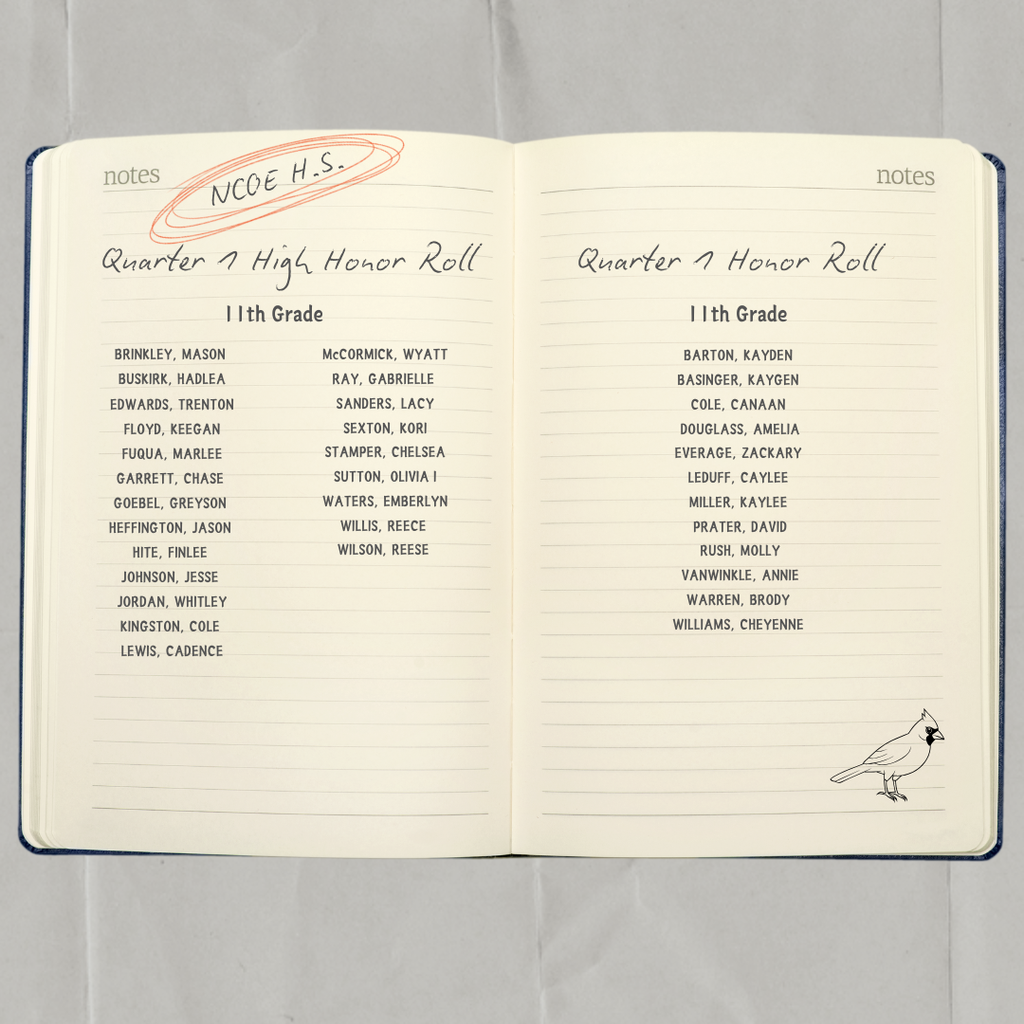 notes
NCOE H.S.
Quarter 1 High Honor Roll
11th Grade
BRINKLEY, MASON
BUSKIRK, HADLEA
EDWARDS, TRENTON
FLOYD, KEEGAN
FUQUA, MARLEE
GARRETT, CHASE
GOEBEL, GREYSON
HEFFINGTON, JASON
HITE, FINLEE
JOHNSON, JESSE
JORDAN, WHITLEY
KINGSTON, COLE
LEWIS, CADENCE
McCORMICK, WYATT
RAY, GABRIELLE
SANDERS, LACY
SEXTON, KORI
STAMPER, CHELSEA
SUTTON, OLIVIA I
WATERS, EMBERLYN
WILLIS, REECE
WILSON, REESE
notes
Quarter 1 Honor Roll
11th Grade
BARTON, KAYDEN
BASINGER, KAYGEN
COLE, CANAAN
DOUGLASS, AMELIA
EVERAGE, ZACKARY
LEDUFF, CAYLEE
MILLER, KAYLEE
PRATER, DAVID
RUSH, MOLLY
VANWINKLE, ANNIE
WARREN, BRODY
WILLIAMS, CHEYENNE